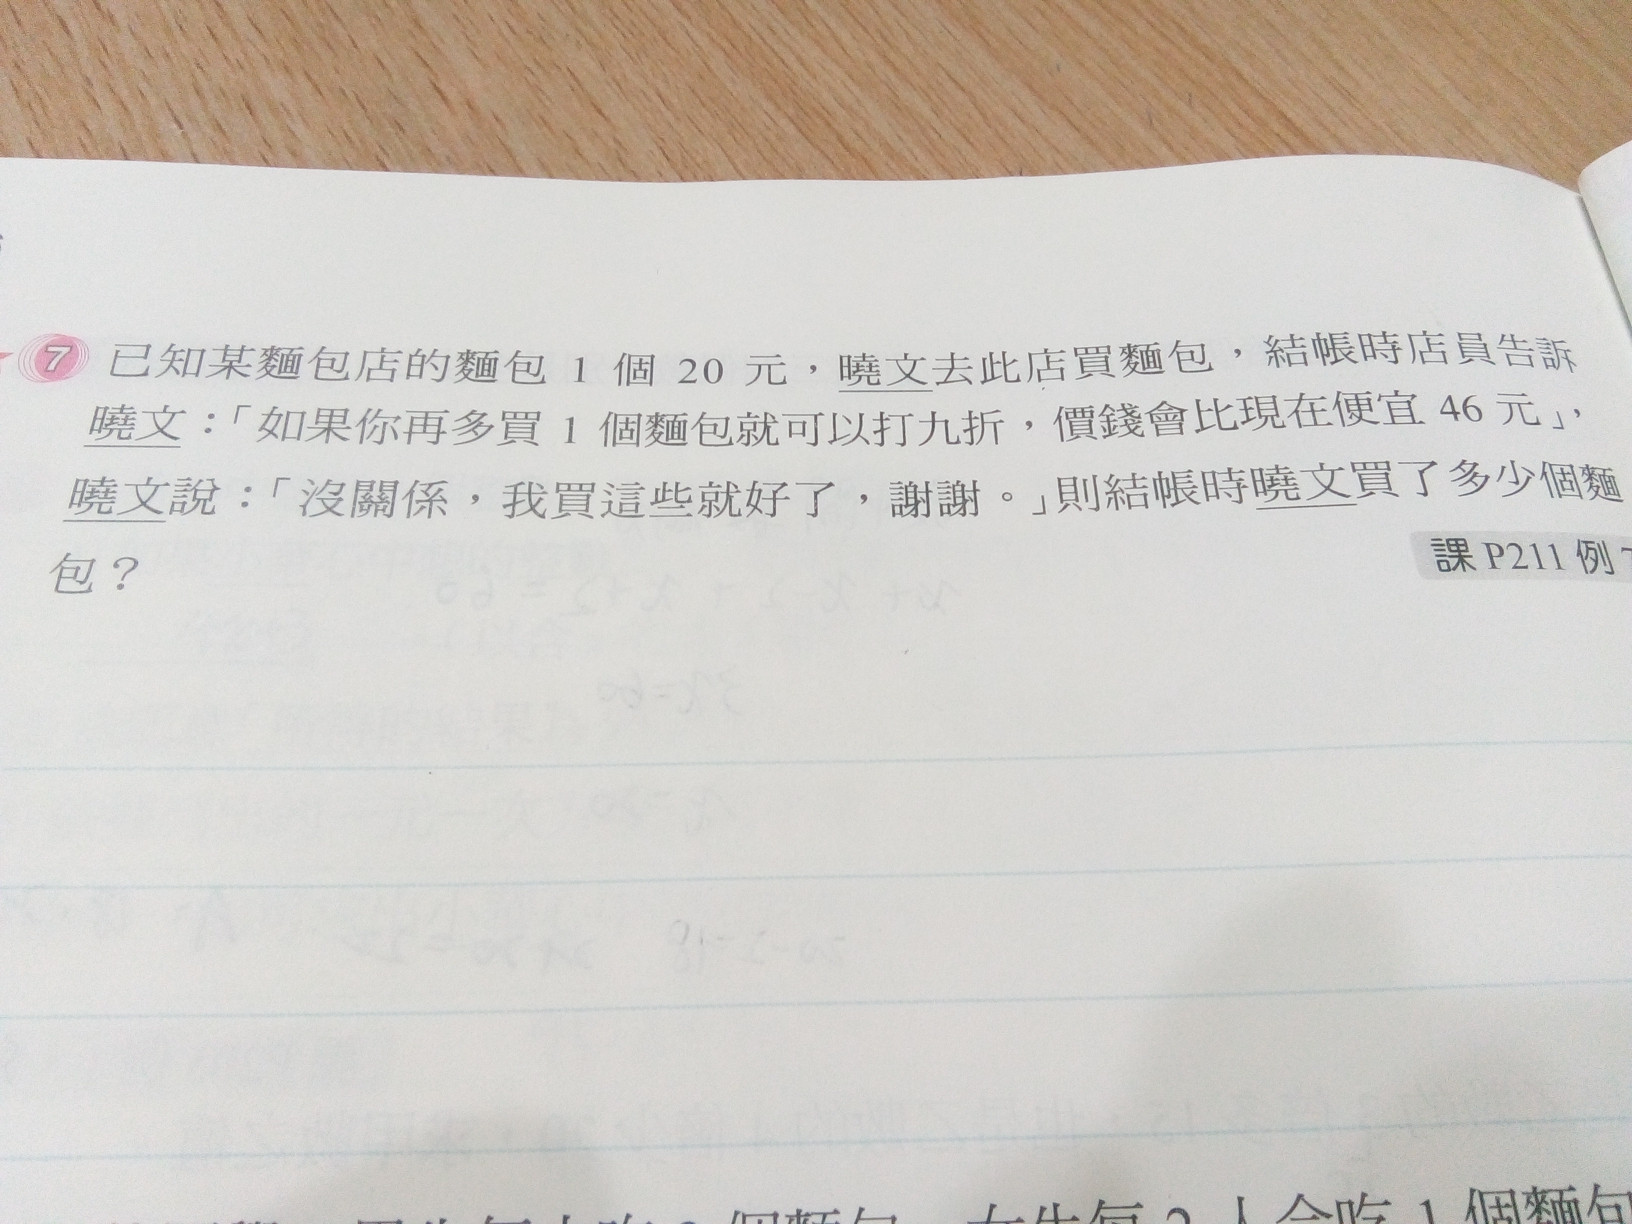 7 已知某麵包店的麵包 1 個 20 元，曉文去此店買麵包，結帳時店員告訴
曉文：「如果你再多買 1 個麵包就可以打九折，價錢會比現在便宜 46 元」，
曉文說：「沒關係，我買這些就好了，謝謝。」則結帳時曉文買了多少個麵
包？
課 P211 例 7
個麵包，女生每 2 人合吃 1 個麵包